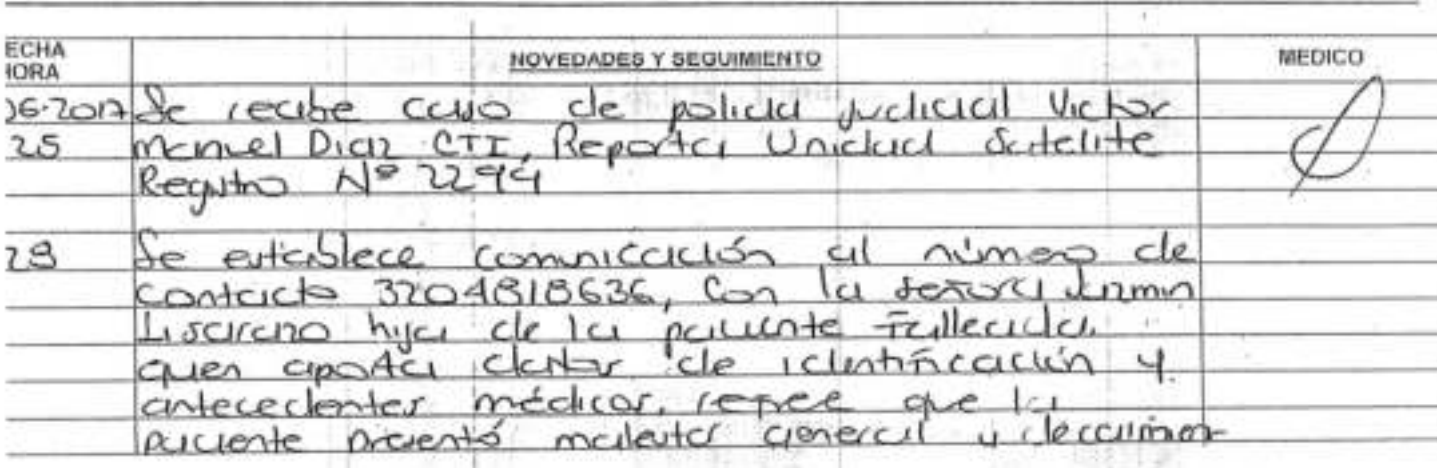 ECHA
HORA
NOVEDADES Y SEGUIMIENTO
MEDICO
06-2017 Se recibe caso de policia judicial Victor
25 Manuel Diaz CTI, Reporta Unidad Satelite
Registro Nº 2294
28 Se establece comunicación al número de
contacto 3204818636, Con la señora
Lisarazo hija de la paciente Fallecida,
quien aporta datos de identificación y
antecedentes médicos, refiere que la
paciente presentó malestar general y